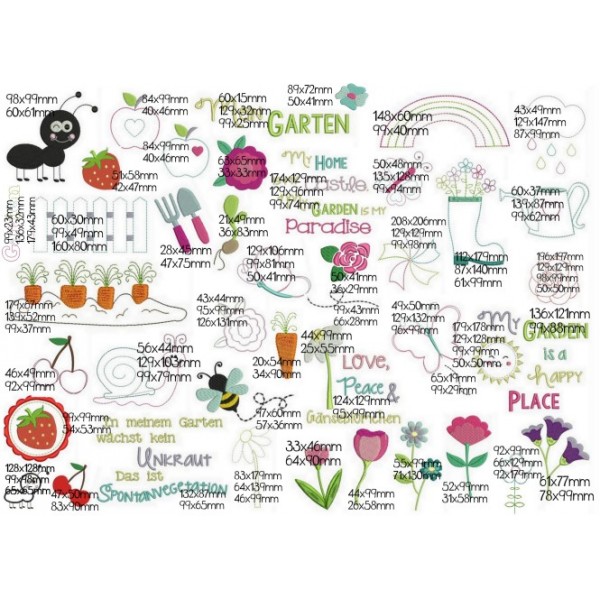 98x99mm
60x61mm
84x99mm
40x46mm
60x15mm
129x32mm
99x25mm
89x72mm
50x41mm
GARTEN
148x60mm
99x40mm
43x49mm
129x147mm
87x99mm
84x99mm
40x46mm
51x58mm
42x47mm
63x65mm
33x33mm
My HOME
174x129mm
129x96mm
99x74mm
GARDEN is my
Paradise
50x48mm
135x128mm
99x94mm
60x37mm
139x87mm
99x62mm
99x23mm
136x32mm
179x43mm
60x30mm
99x49mm
160x80mm
28x45mm
47x75mm
21x49mm
36x83mm
129x106mm
99x81mm
50x41mm
50x41mm
36x29mm
99x43mm
66x28mm
208x206mm
129x129mm
99x98mm
112x179mm
87x140mm
61x99mm
196x197mm
129x129mm
98x99mm
50x50mm
179x67mm
139x52mm
99x37mm
43x44mm
95x99mm
126x131mm
49x50mm
129x132mm
96x99mm
136x121mm
99x88mm
My
GARDEN
is a
happy
PLACE
179x178mm
129x128mm
99x99mm
50x50mm
46x49mm
92x99mm
56x44mm
129x103mm
99x79mm
20x54mm
34x90mm
44x99mm
25x55mm
Love,
Peace &
Gänseblümchen
124x129mm
95x99mm
65x19mm
99x29mm
99x99mm
54x53mm
In meinem Garten
wächst kein
UNKRAUT
Das ist
SPONTANVEGETATION
97x60mm
57x36mm
128x128mm
99x98mm
65x65mm
47x50mm
83x90mm
132x87mm
99x65mm
83x179mm
64x139mm
46x99mm
33x46mm
64x90mm
44x99mm
26x58mm
55x99mm
71x130mm
52x99mm
31x58mm
92x99mm
66x129mm
92x179mm
61x77mm
78x99mm